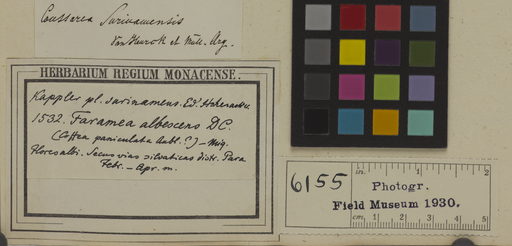 Coussarea Surinamensis
Van Heurck et Müll. Arg.
HERBARIUM REGIUM MONACENSE.
Kappler pl. surinamens. Ed. Hohenacker
1532. Faramea albescens DC.
(Coffea paniculata Aubl.?) – Miq.
Flores albi. Secus vias silvaticas distr. Para
Febr. – Apr. m.
6155
in. 1 2
Photogr.
Field Museum 1930.
cm. 1 2 3 4 5